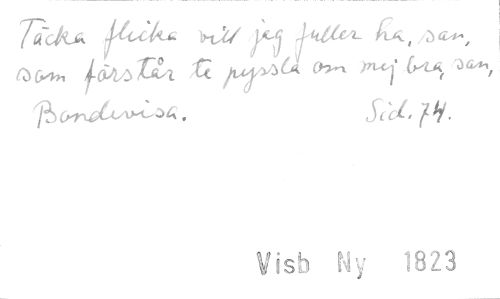 Täcka flicka vill jag fuller ha, san,
som förstår te pyssla om mej bra, san,
Bondevisa. Sid. 74.
Visb Ny 1823